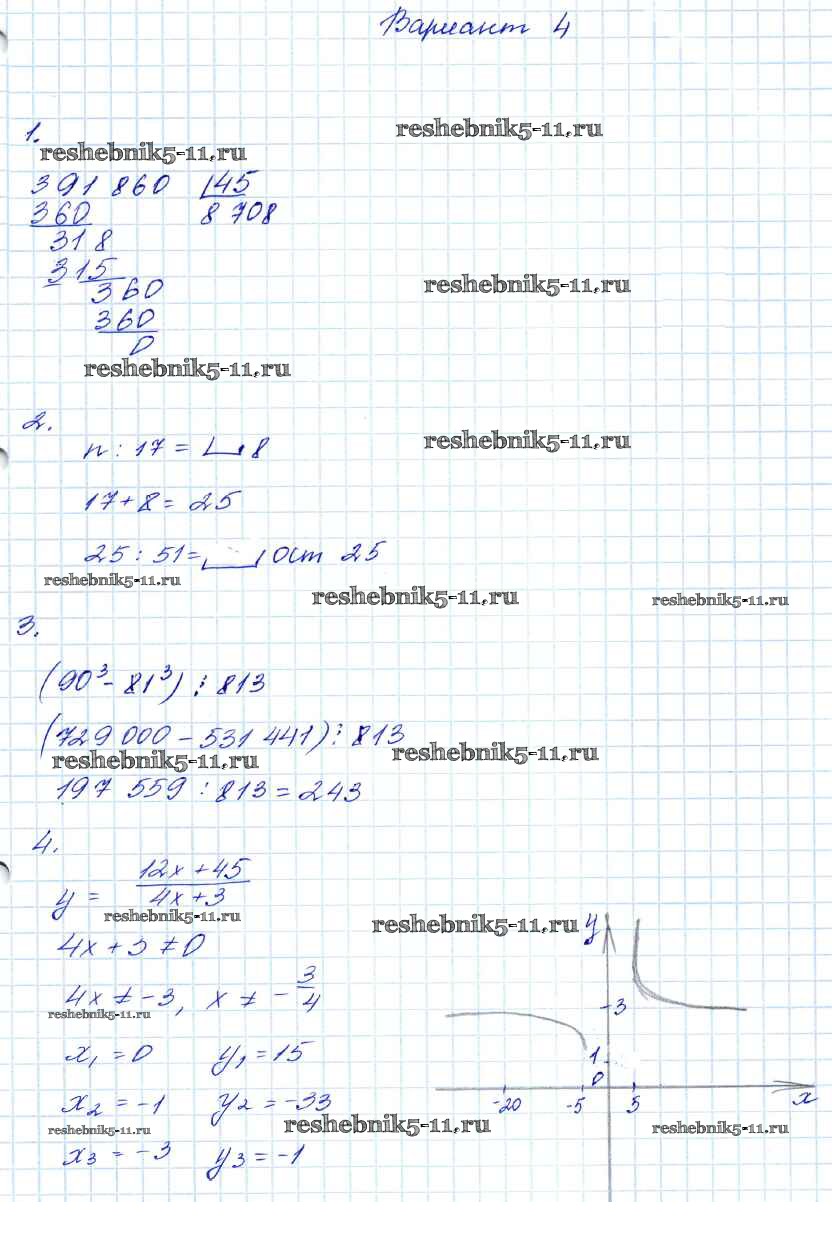 Вариант 4
1.
reshebnik5-11.ru
reshebnik5-11.ru
391 860 45
360 8 708
318
315
360
reshebnik5-11.ru
360
0
reshebnik5-11.ru
2.
n : 17 = 8
reshebnik5-11.ru
17 + 8 = 25
25 : 51 = Ост 25
reshebnik5-11.ru
reshebnik5-11.ru
reshebnik5-11.ru
3.
(90³ - 81³) ⋮ 813
(729 000 - 531 441) ⋮ 813
reshebnik5-11.ru
reshebnik5-11.ru
197 559 : 813 = 243
4.
y = 12x + 45 / 4x + 3
reshebnik5-11.ru
reshebnik5-11.ru
y
4x + 3 ≠ 0
4x ≠ -3, x ≠ - 3/4
3
reshebnik5-11.ru
x₁ = 0 y₁ = 15
1
0
x₂ = -1 y₂ = -33
-20 -5 5 x
reshebnik5-11.ru
reshebnik5-11.ru
reshebnik5-11.ru
x₃ = -3 y₃ = -1